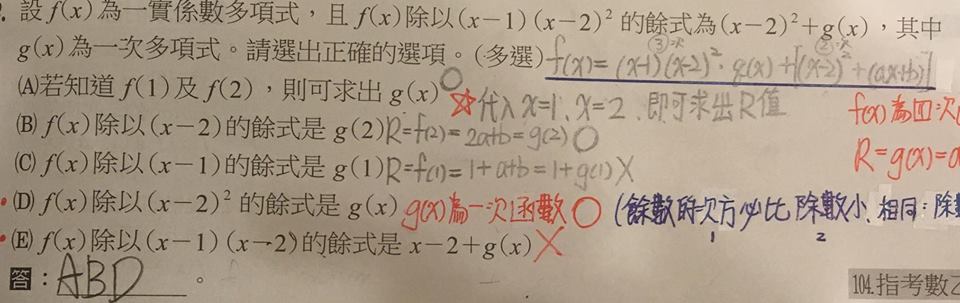 設 f(x) 為一實係數多項式，且 f(x) 除以 (x−1)(x−2)² 的餘式為 (x−2)²+g(x)，其中
g(x) 為一次多項式。請選出正確的選項。(多選) f(x)=(x-1)(x-2)²·q(x)+[(x-2)²+(ax+b)]
③次 ②次
(A)若知道 f(1) 及 f(2)，則可求出 g(x) ○ ☆代入 x=1、x=2、即可求出R值 f(x)為四次
(B) f(x) 除以 (x−2) 的餘式是 g(2) R=f(2)=2a+b=g(2) ○
(C) f(x) 除以 (x−1) 的餘式是 g(1) R=f(1)=1+a+b=1+g(1) X R=g(x)=a
(D) f(x) 除以 (x−2)² 的餘式是 g(x) g(x)為一次函數 ○ (餘數的次方必比除數小、相同：除
1 2
(E) f(x) 除以 (x−1)(x−2) 的餘式是 x−2+g(x) X
答：ABD。
104.指考數乙